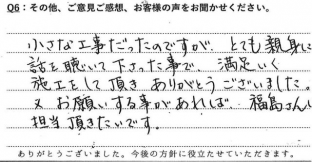 Q6:その他、ご意見ご感想、お客様の声をお聞かせください。
小さな工事だったのですが、とても親身に
話を聴いて下さった事で、満足いく
施工をして頂き ありがとうございました。
又 お願いする事があれば、福島さんに
担当頂きたいです。
ありがとうございました。今後の方針に役立たせていただきます。